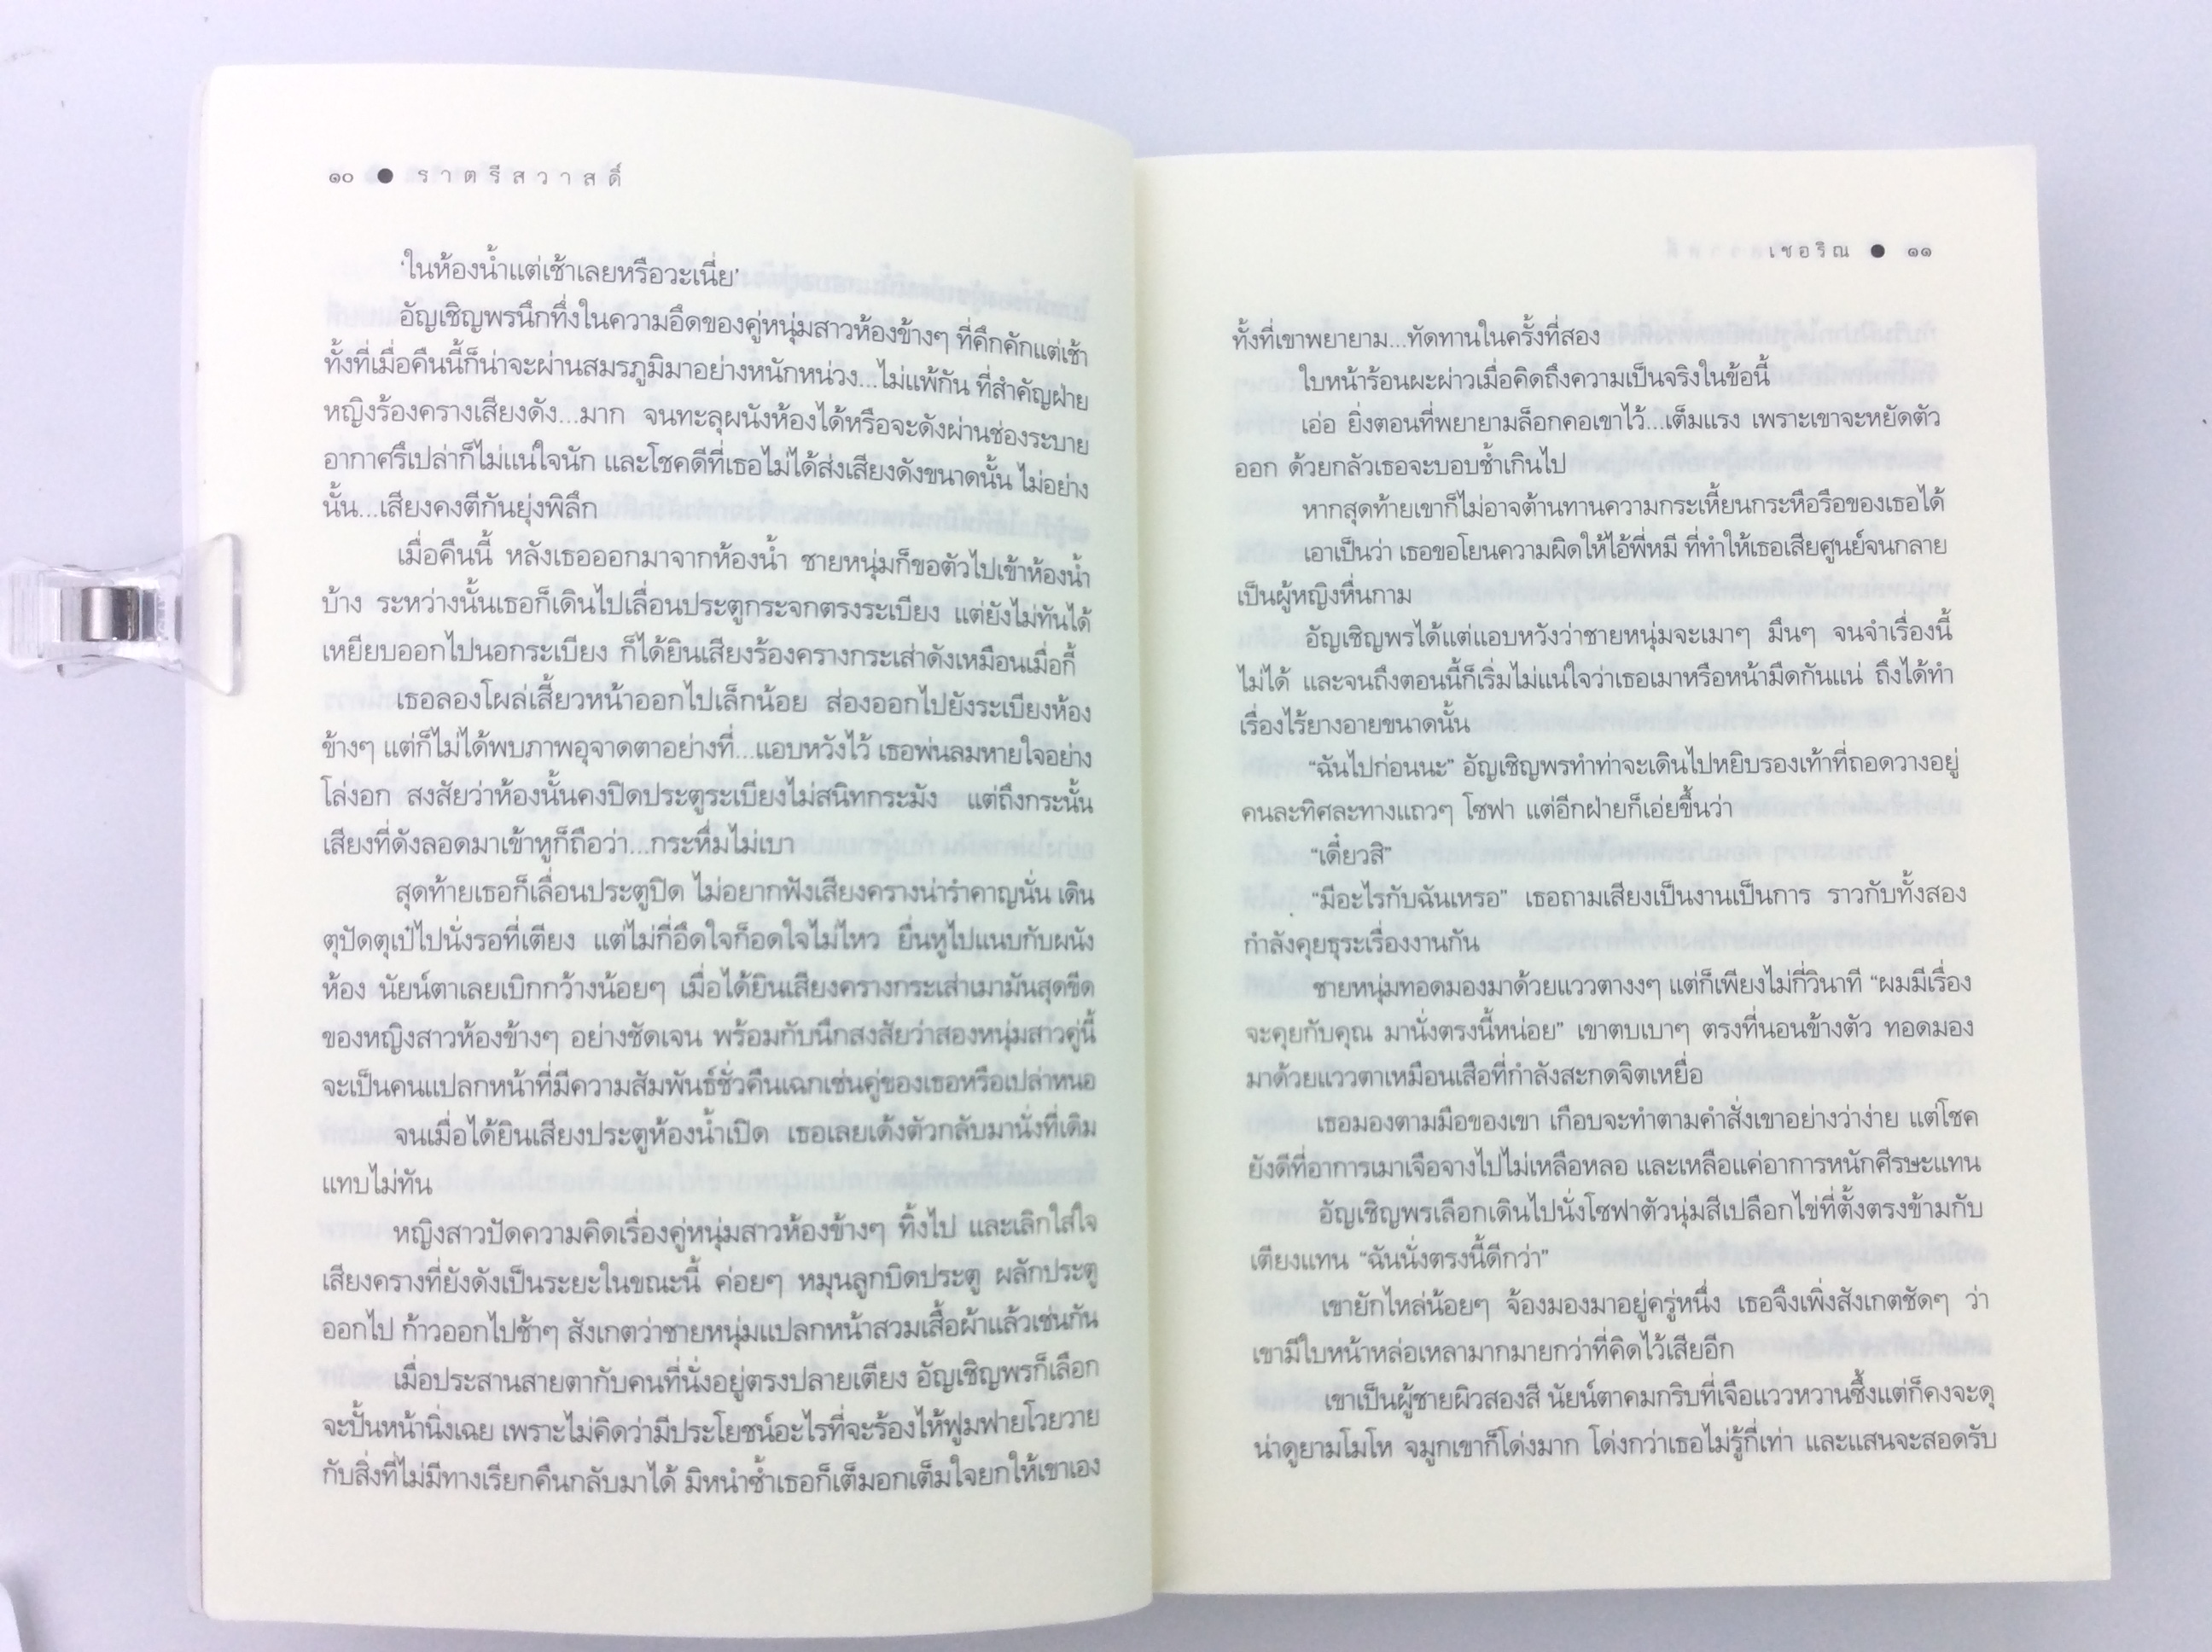 ๑๐ ● ราตรีสวาสดิ์
‘ในห้องน้ำแต่เช้าเลยหรือวะเนี่ย’
อัญเชิญพรนึกทึ่งในความอึดของคู่หนุ่มสาวห้องข้างๆ ที่คึกคักแต่เช้า
ทั้งที่เมื่อคืนนี้ก็น่าจะผ่านสมรภูมิมาอย่างหนักหน่วง...ไม่แพ้กัน ที่สำคัญฝ่าย
หญิงร้องครางเสียงดัง...มาก จนทะลุผนังห้องได้หรือจะดังผ่านช่องระบาย
อากาศรึเปล่าก็ไม่แน่ใจนัก และโชคดีที่เธอไม่ได้ส่งเสียงดังขนาดนั้น ไม่อย่าง
นั้น...เสียงคงตีกันยุ่งพิลึก
เมื่อคืนนี้ หลังเธอออกมาจากห้องน้ำ ชายหนุ่มก็ขอตัวไปเข้าห้องน้ำ
บ้าง ระหว่างนั้นเธอก็เดินไปเลื่อนประตูกระจกตรงระเบียง แต่ยังไม่ทันได้
เหยียบออกไปนอกระเบียง ก็ได้ยินเสียงร้องครางกระเส่าดังเหมือนเมื่อกี้
เธอลองโผล่เสี้ยวหน้าออกไปเล็กน้อย ส่องออกไปยังระเบียงห้อง
ข้างๆ แต่ก็ไม่ได้พบภาพอุจาดตาอย่างที่...แอบหวังไว้ เธอพ่นลมหายใจอย่าง
โล่งอก สงสัยว่าห้องนั้นคงปิดประตูระเบียงไม่สนิทกระมัง แต่ถึงกระนั้น
เสียงที่ดังลอดมาเข้าหูก็ถือว่า...กระหึ่มไม่เบา
สุดท้ายเธอก็เลื่อนประตูปิด ไม่อยากฟังเสียงครางน่ารำคาญนั่น เดิน
ตุปัดตุเป๋ไปนั่งรอที่เตียง แต่ไม่กี่อึดใจก็อดใจไม่ไหว ยื่นหูไปแนบกับผนัง
ห้อง นัยน์ตาเลยเบิกกว้างน้อยๆ เมื่อได้ยินเสียงครางกระเส่าเมามันสุดขีด
ของหญิงสาวห้องข้างๆ อย่างชัดเจน พร้อมกับนึกสงสัยว่าสองหนุ่มสาวคู่นี้
จะเป็นคนแปลกหน้าที่มีความสัมพันธ์ชั่วคืนเฉกเช่นคู่ของเธอหรือเปล่าหนอ
จนเมื่อได้ยินเสียงประตูห้องน้ำเปิด เธอเลยเด้งตัวกลับมานั่งที่เดิม
แทบไม่ทัน
หญิงสาวปัดความคิดเรื่องคู่หนุ่มสาวห้องข้างๆ ทิ้งไป และเลิกใส่ใจ
เสียงครางที่ยังดังเป็นระยะในขณะนี้ ค่อยๆ หมุนลูกบิดประตู ผลักประตู
ออกไป ก้าวออกไปช้าๆ สังเกตว่าชายหนุ่มแปลกหน้าสวมเสื้อผ้าแล้วเช่นกัน
เมื่อประสานสายตากับคนที่นั่งอยู่ตรงปลายเตียง อัญเชิญพรก็เลือก
จะปั้นหน้านิ่งเฉย เพราะไม่คิดว่ามีประโยชน์อะไรที่จะร้องไห้ฟูมฟายโวยวาย
กับสิ่งที่ไม่มีทางเรียกคืนกลับมาได้ มิหนำซ้ำเธอก็เต็มอกเต็มใจยกให้เขาเอง
เชอริณ ● ๑๑
ทั้งที่เขาพยายาม...ทัดทานในครั้งที่สอง
ใบหน้าร้อนผะผ่าวเมื่อคิดถึงความเป็นจริงในข้อนี้
เอ่อ ยิ่งตอนที่พยายามล็อกคอเขาไว้...เต็มแรง เพราะเขาจะหยัดตัว
ออก ด้วยกลัวเธอจะบอบช้ำเกินไป
หากสุดท้ายเขาก็ไม่อาจต้านทานความกระเหี้ยนกระหือรือของเธอได้
เอาเป็นว่า เธอขอโยนความผิดให้ไอ้พี่หมี ที่ทำให้เธอเสียศูนย์จนกลาย
เป็นผู้หญิงหื่นกาม
อัญเชิญพรได้แต่แอบหวังว่าชายหนุ่มจะเมาๆ มึนๆ จนจำเรื่องนี้
ไม่ได้ และจนถึงตอนนี้ก็เริ่มไม่แน่ใจว่าเธอเมาหรือหน้ามืดกันแน่ ถึงได้ทำ
เรื่องไร้ยางอายขนาดนั้น
“ฉันไปก่อนนะ” อัญเชิญพรทำท่าจะเดินไปหยิบรองเท้าที่ถอดวางอยู่
คนละทิศละทางแถวๆ โซฟา แต่อีกฝ่ายก็เอ่ยขึ้นว่า
“เดี๋ยวสิ”
“มีอะไรกับฉันเหรอ” เธอถามเสียงเป็นงานเป็นการ ราวกับทั้งสอง
กำลังคุยธุระเรื่องงานกัน
ชายหนุ่มทอดมองมาด้วยแววตางงๆ แต่ก็เพียงไม่กี่วินาที “ผมมีเรื่อง
จะคุยกับคุณ มานั่งตรงนี้หน่อย” เขาตบเบาๆ ตรงที่นอนข้างตัว ทอดมอง
มาด้วยแววตาเหมือนเสือที่กำลังสะกดจิตเหยื่อ
เธอมองตามมือของเขา เกือบจะทำตามคำสั่งเขาอย่างว่าง่าย แต่โชค
ยังดีที่อาการเมาเจือจางไปไม่เหลือหลอ และเหลือแค่อาการหนักศีรษะแทน
อัญเชิญพรเลือกเดินไปนั่งโซฟาตัวนุ่มสีเปลือกไข่ที่ตั้งตรงข้ามกับ
เตียงแทน “ฉันนั่งตรงนี้ดีกว่า”
เขายักไหล่น้อยๆ จ้องมองมาอยู่ครู่หนึ่ง เธอจึงเพิ่งสังเกตชัดๆ ว่า
เขามีใบหน้าหล่อเหลามากมายกว่าที่คิดไว้เสียอีก
เขาเป็นผู้ชายผิวสองสี นัยน์ตาคมกริบที่เจือแววหวานซึ้งแต่ก็คงจะดุ
น่าดูยามโมโห จมูกเขาก็โด่งมาก โด่งกว่าเธอไม่รู้กี่เท่า และแสนจะสอดรับ